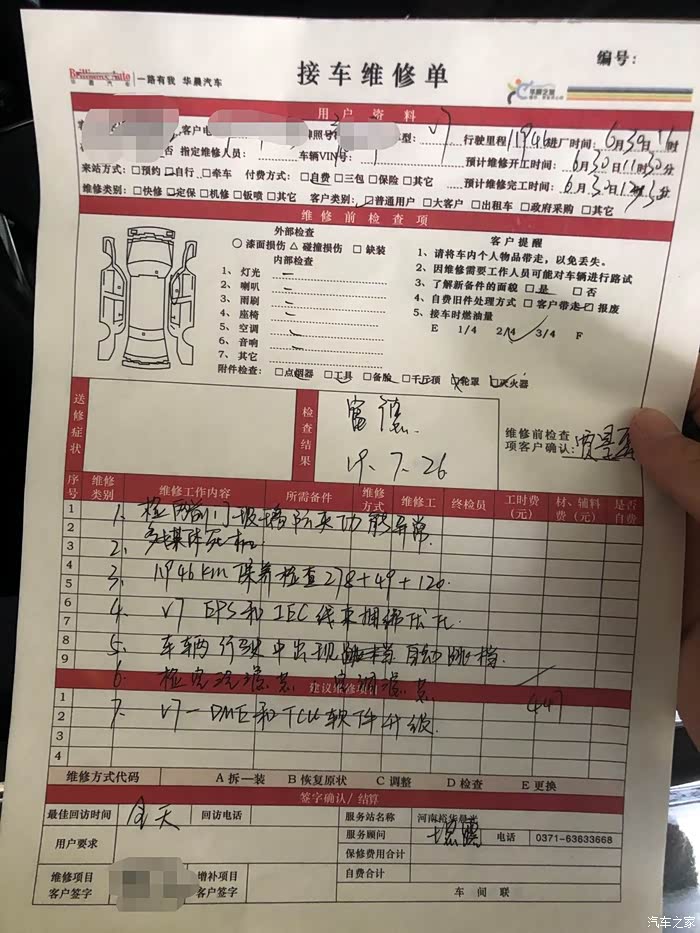 Brilliance Auto 一路有我 华晨汽车
华晨汽车
接车维修单
编号:
用户资料
客户电 牌照号 型: V7 行驶里程 11946 进厂时间: 6月30日11时
否 指定维修人员: 车辆VIN号: 预计维修开工时间: 6月30日11时30分
来站方式: □预约 □自行 □牵车 付费方式: □自费 □三包 □保险 □其它 预计维修完工时间: 6月30日
维修类别: □快修 □定保 □机修 □钣喷 □其它 客户类别: □普通用户 □大客户 □出租车 □政府采购 □其它
维修前检查项
外部检查
○ 漆面损伤 △ 碰撞损伤 □ 缺装
内部检查
1、灯光
2、喇叭
3、雨刷
4、座椅
5、空调
6、音响
7、其它
附件检查: □点烟器 □工具 □备胎 □千斤顶 □轮罩 □灭火器
客户提醒
1、请将车内个人物品带走,以免丢失。
2、因维修需要工作人员可能对车辆进行路试
3、了解新备件的面貌 □是 □否
4、自费旧件处理方式 □客户带走 □报废
5、接车时燃油量
E 1/4 2/4 3/4 F
送修症状
检查结果
19.7.26
维修前检查
项客户确认:
序号 维修类别 维修工作内容 所需备件 维修方式 维修工 终检员 工时费(元) 材、辅料费(元) 是否自费
1 1. 功能异常.
2 2. 多媒体死机
3 3. 11946km 保养检查 278+49+120.
4
5
6 4. V7 EPS和IEC线束捆绑
7
8 5. 车辆行驶中出现 自动跳档.
9 6.
447
建议维修项
1
2 7. V7-DME和TCU软件升级.
3
4
维修方式代码 A 拆一装 B 恢复原状 C 调整 D 检查 E 更换
签字确认/结算
最佳回访时间 全天 回访电话 服务站名称
用户要求 服务顾问 电话 0371-63633668
保修费用合计
维修项目客户签字 增补项目客户签字 自费合计
车间联
汽车之家